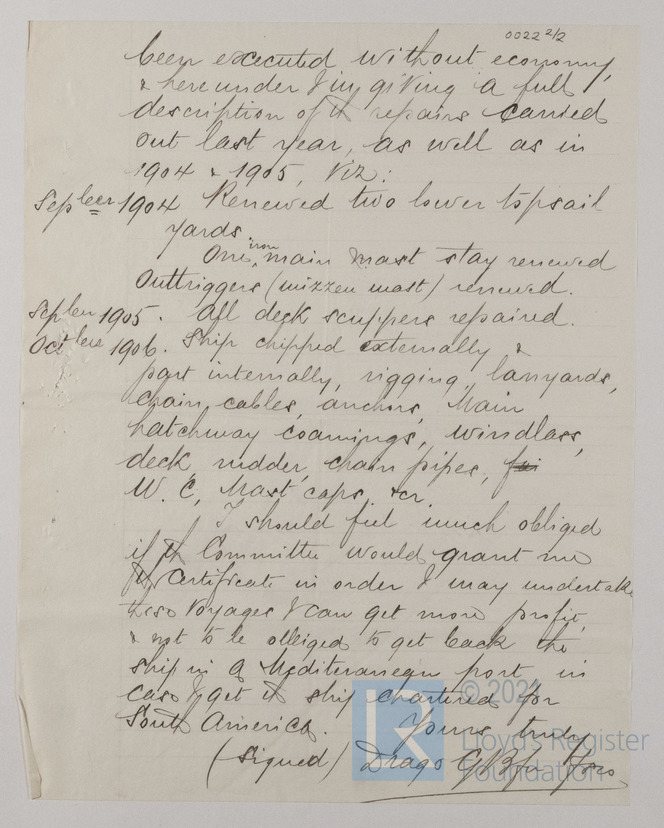 0022 2/2
been executed without economy,
& hereunder I'm giving a full
description of th repairs carried
out last year, as well as in
1904 & 1905, viz:
Sepber 1904 Renewed two lower topsail
yards
One iron main mast stay renewed
Outtriggers (mizzen mast) renewed.
Sepber 1905. All deck scuppers repaired.
Octbre 1906. Ship chipped externally &
part internally, rigging, lanyards,
chain, cables, anchors, Main
hatchway coamings, windlass,
deck, rudder, chain pipes,
W.C, Mast caps, &cr.
I should feel much obliged
if th Committee would grant me
th Certificate in order I may undertake
these Voyages I can get more profit,
& not to be obliged to get back the
ship in a Mediteranean port, in
case I get th ship chartered for
South America. Yours truly
(signed) Drago
© 2021
Lloyd's Register
Foundation